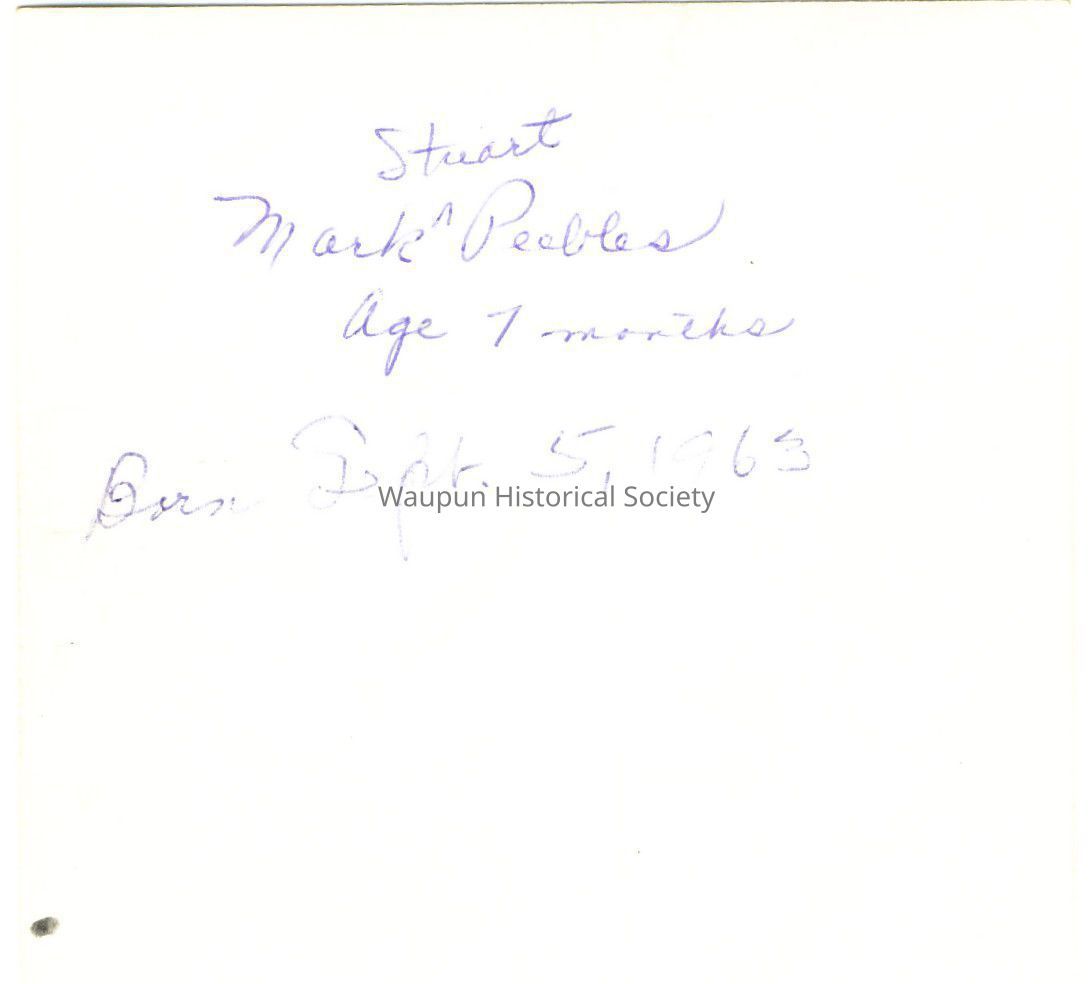 Stuart
Mark ^ Peebles
Age 7 months
Born Sept. 5, 1963
Waupun Historical Society